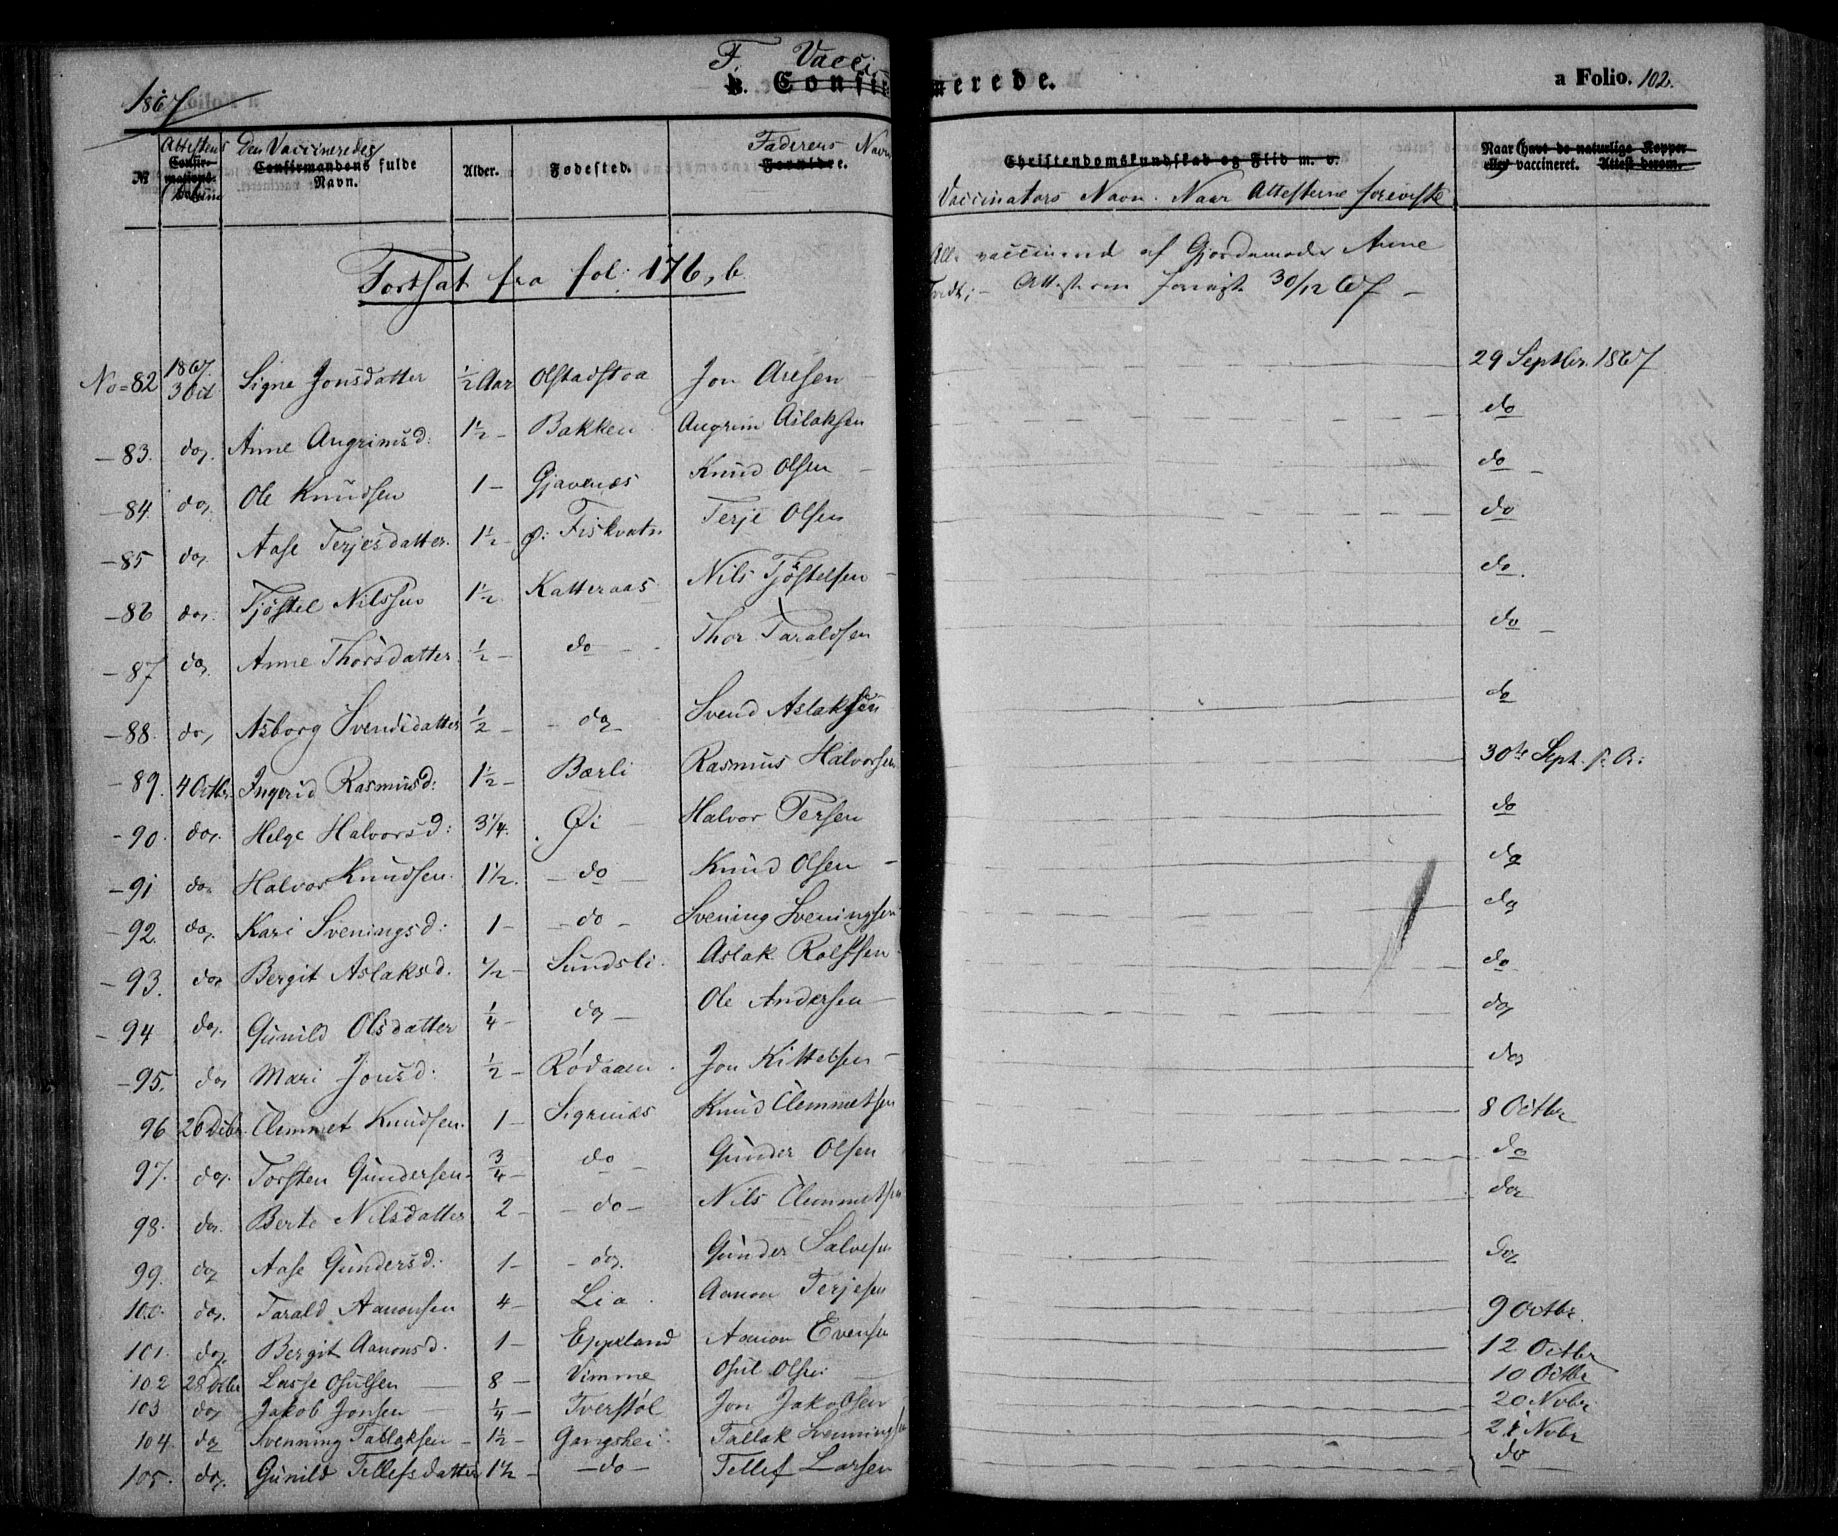 1867
F. Vacci-
b. Confirmerede.
a Folio. 102.
№
Attestens Confirmations- Datum
Den Vaccineredes Confirmandens fulde Navn.
Alder.
Fødested.
Faderens Navn Forældre.
Christendomskundskab og Flid m. v.
Vaccinators Navn. Naar Attesterne foreviste
Naar (havt de naturlige Kopper eller) vaccineret. Attest derom.
Fortsat fra fol: 176, b.
Alle vaccinered af Gjordemoder Anne
Attesterne forevist 30/12 67 –
No=82 1867. 3 Oct Signe Jonsdatter ½ Aar Olstadstoa Jon Aresen 29 Septbr. 1867
– 83. do. Anne Angrimsd: 1½ – Bakken Angrim Aslaksen do
– 84. do. Ole Knudsen 1 – Gjavenæs Knud Olsen – do –
– 85 do. Aase Terjesdatter. 1½ – Ø: Fiskvatn Terje Olsen do
– 86 do. Tjöstel Nilssen 1½ Katteraas Nils Tjöstelsen – do.
– 87 do. Anne Thorsdatter ½ – do – Thor Taraldsen do –
– 88. do. Asborg Svendsdatter ½ – do Svend Aslaksen do
– 89. 4 Octbr. Ingerid Rasmusd: 1½ – Bærli Rasmus Halvorsen 30te Sept. s: A:
– 90. do. Helge Halvorsd: 3¼. Øi – Halvor Tersen do
– 91 do. Halvor Knudsen. 1½. – do – Knud Olsen – do
– 92. do. Kari Sveningsd: 1 – – do – Svening Sveningsen do
– 93. do. Bergit Aslaksd. ½ – Sundsli. Aslak Rolfsen do
– 94 do. Gunild Olsdatter ¼ – do – Ole Andersen – do
– 95. do Mari Jonsd: ½ – Rödaaen. Jon Kittelsen – do
96 26 Dcbr. Clemmet Knudsen. 1 – Sigrinæs Knud Clemmetsen 8 Octbr
97. do. Torsten Gundersen ¾ – do – Gunder Olsen do
98. do. Berte Nilsdatter 2 – – do – Nils Clemmetsen do
99. do Aase Gundersd. 1 – – do. Gunder Salvesen do
100. do. Tarald Aanonsen 4 – Lia. Aanon Terjesen 9 Octbr.
101. do. Bergit Aanonsd. 1 – Eppeland Aanon Evensen 12 Octbr
102 28 Dcbr Lasse Osulsen – 8 – Vimme Osul Olsen 10 Octbr
103 do Jakob Jonsen – ¼ – Tverstöl Jon Jakobsen 20 Nvbr.
104. do Svenning Tallaksen – 1½ – Gangshei. Tallak Svenningsen 21 Nvbr
105. do. Gunild Tellefsdatter 1½ – – do – Tellef Larsen do